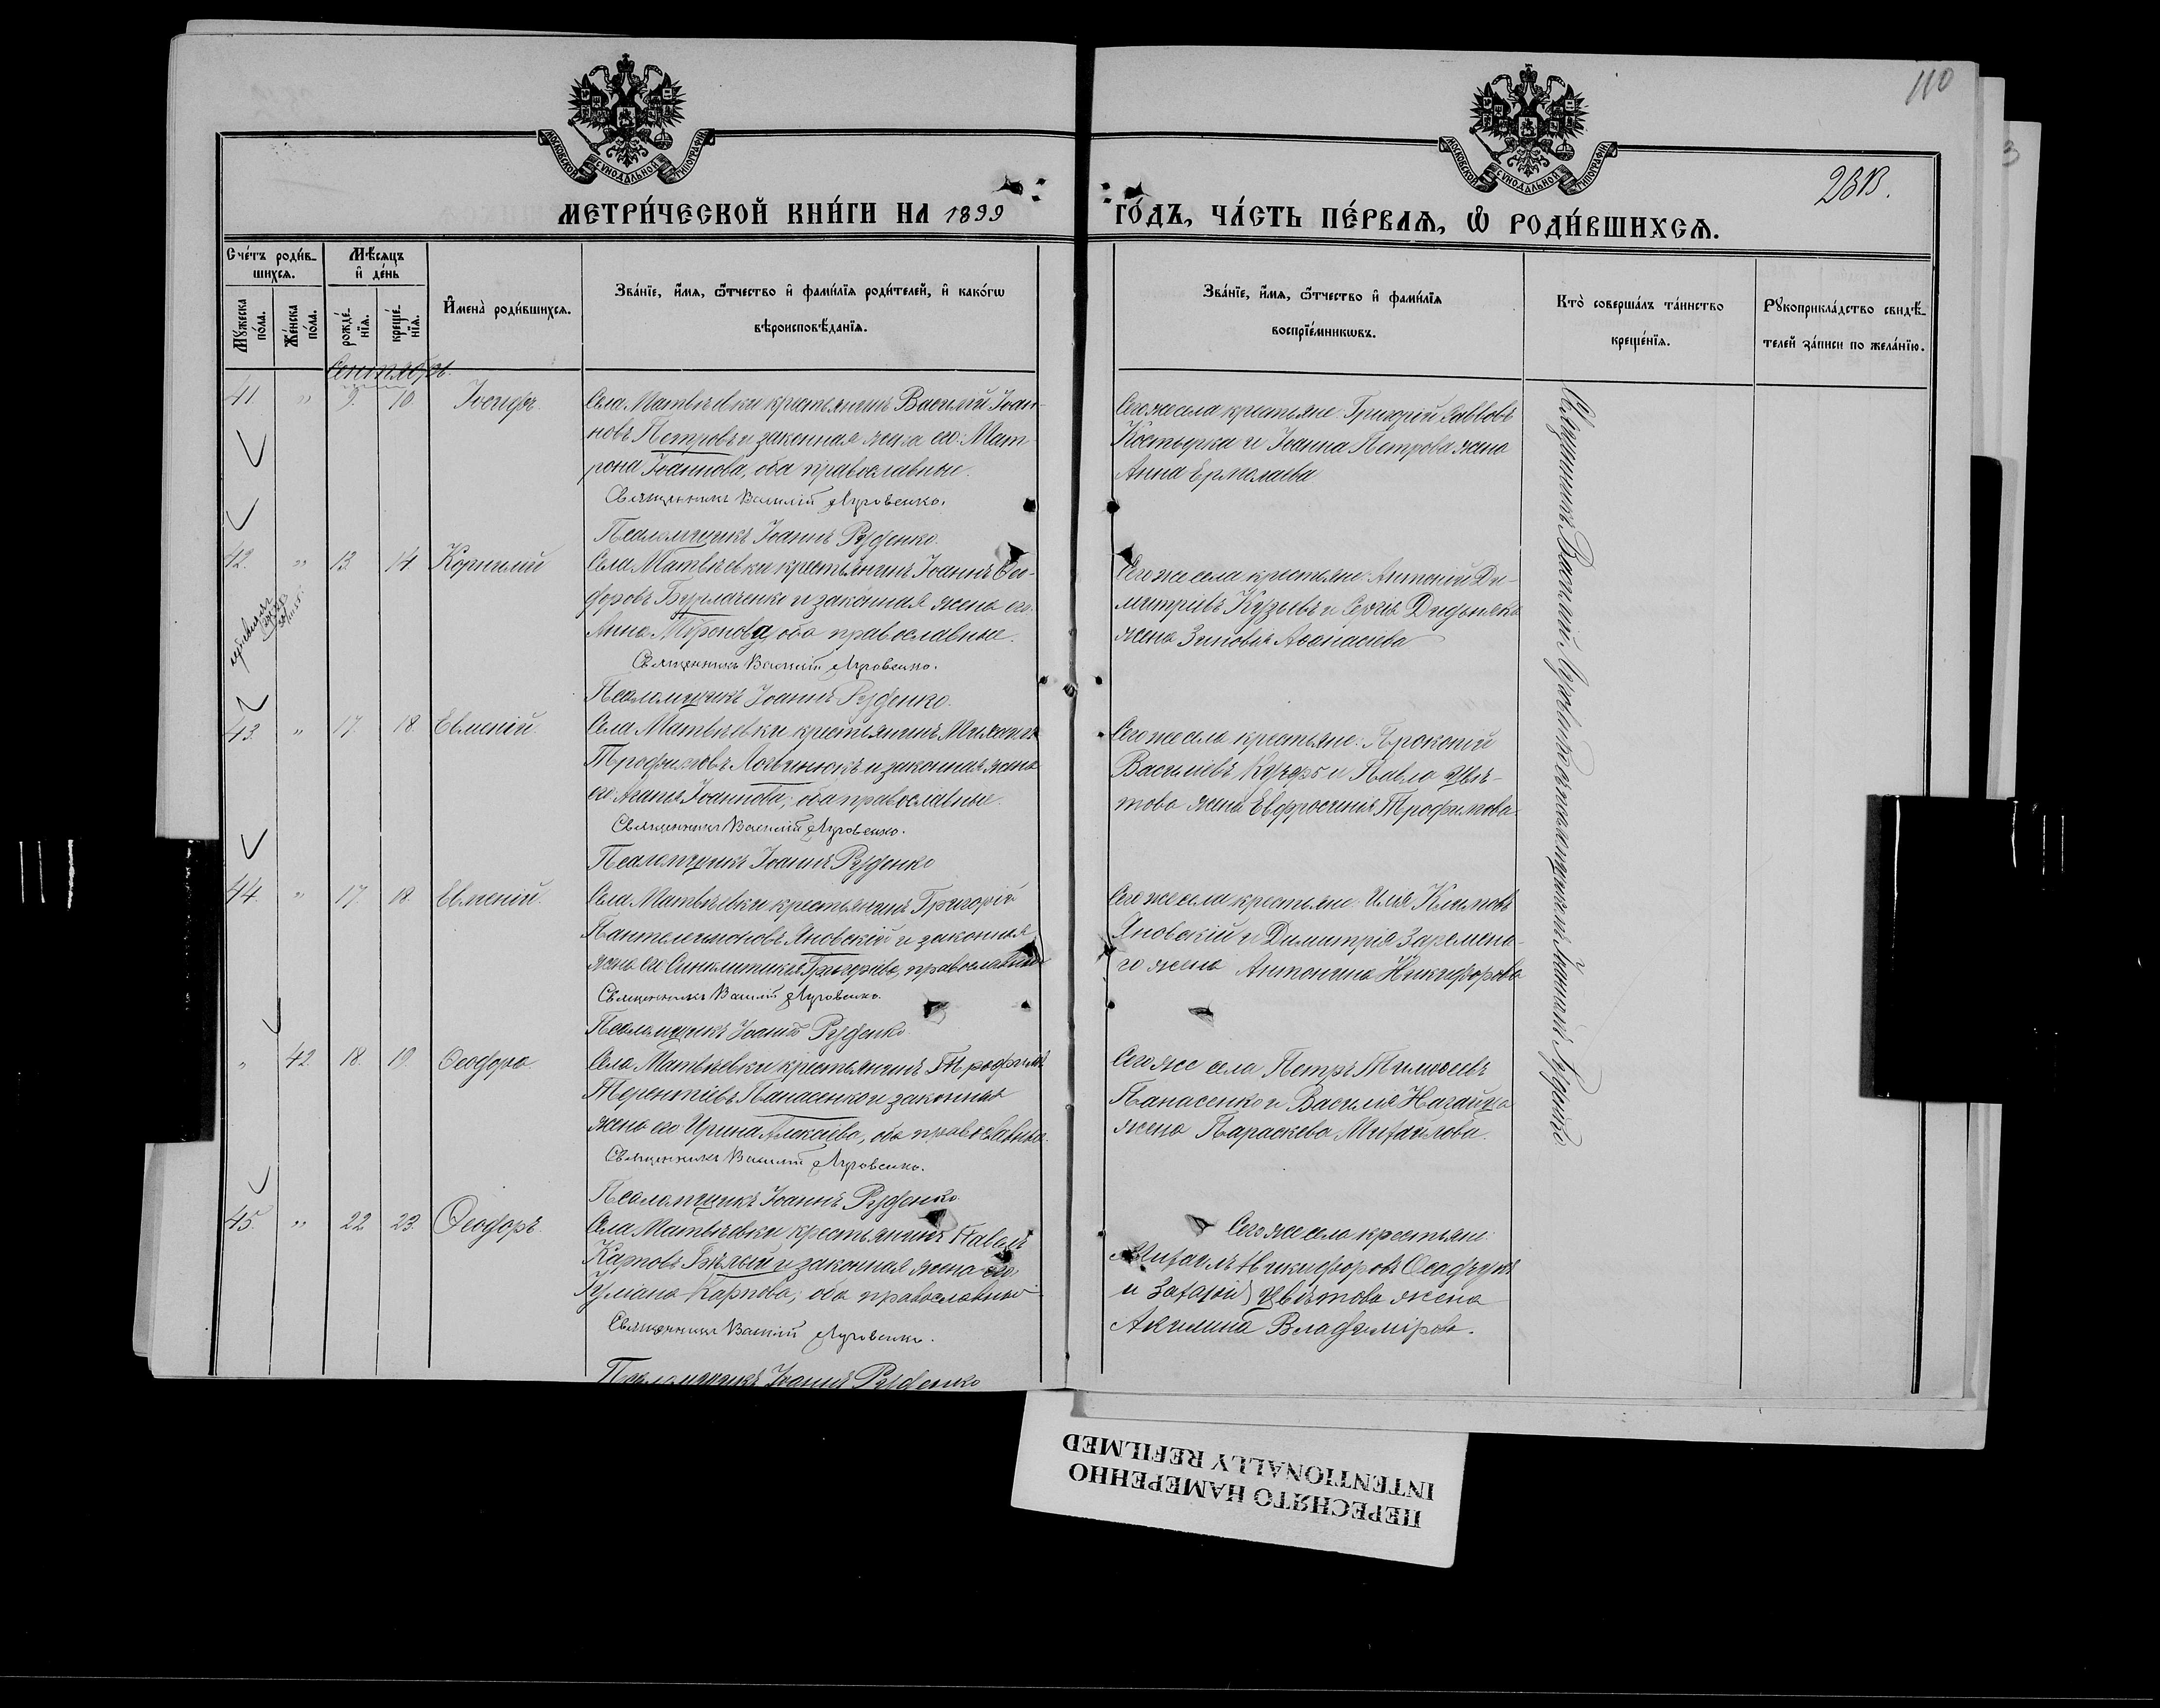 110
3
МОСКОВСКОЙ СѴНОДАЛЬНОЙ ТИПОГРАФІИ
МОСКОВСКОЙ СѴНОДАЛЬНОЙ ТИПОГРАФІИ
МЕТРИ́ЧЕСКОЙ КНИ́ГИ НА 1899
ГО́ДЪ, ЧА́СТЬ ПЕ́РВАѦ, Ѽ РОДИ́ВШИХСѦ.
Сче́тъ роди́в-
шихсѧ.
Мꙋ́жеска по́ла.
Же́нска по́ла.
Мѣ́сѧцъ и҆ де́нь
рожде́-нїѧ.
креще́-нїѧ.
И҆мена̀ роди́вшихсѧ.
Зва́нїе, и҆́мѧ, ѻ҆́тчество и҆ фами́лїѧ роди́телей, и҆ како́гѡ
вѣроисповѣ́данїѧ.
Зва́нїе, и҆́мѧ, ѻ҆́тчество и҆ фами́лїѧ
воспрїе́мникѡвъ.
Кто̀ соверша́лъ та́инство
креще́нїѧ.
Рꙋкоприкла́дство свидѣ́-
телей за́писи по жела́нїю.
Сентябрь.
41. " 9. 10. Іосифъ.
Села Матвѣевки крестьянинъ Василій Іоан-
новъ Петровъ и законная жена его Мат-
рона Іоаннова, оба православные.
Священникъ Василій Луговенко.
Псаломщикъ Іоаннъ Руденко.
Сегоже села крестьяне: Григорій Саввовъ
Костырка и Іоанна Петрова жена
Анна Ермолаева
42. " 13. 14 Корнилий
Села Матвѣевки крестьянинъ Іоаннъ Ѳео-
доровъ Бурлаченко и законная жена его
Анна Миронова оба православные.
Священникъ Василій Луговенко.
Псаломщикъ Іоаннъ Руденко.
Сегоже села крестьяне: Антоній Ди-
митріевъ и Сергія
жена Зиновія Аѳанасіева
43. " 17. 18. Евменій.
Села Матвѣевки крестьянинъ Михаилъ
Трофимовъ Логвинюкъ и законная жена
его Агапія Іоаннова, оба православные.
Священникъ Василій Луговенко.
Псаломщикъ Іоаннъ Руденко
Сегоже села крестьяне: Прокопій
Василіевъ Кучеръ и Павла Цвѣ-
това жена Евфросинія Трофимова.
44. " 17. 18. Евменій.
Села Матвѣевки крестьянинъ Григорій
Пантелеимоновъ Яновскій и законная
жена его Синклитикія Григоріева, православные
Священникъ Василій Луговенко.
Псаломщикъ Іоаннъ Руденко
Сегоже села крестьяне: Илія Климовъ
Яновскій и Димитрія Заремско-
го жена Антонина Никифорова
" 42. 18. 19. Ѳеодора
Села Матвѣевки крестьянинъ Трофимъ
Терентіевъ Панасенко и законная
жена его Ирина Алексіева, оба православные.
Священникъ Василій Луговенко.
Псаломщикъ Іоаннъ Руденко.
Сегоже села Петръ Тимоѳеевъ
Панасенко и Василія Нагайца
жена Параскева Михаилова.
45. " 22 23. Ѳеодоръ.
Села Матвѣевки крестьянинъ Павелъ
Карповъ Бѣлый и законная жена его
Іуліана Карпова, оба православные
Священникъ Василій Луговенко.
Псаломщикъ Іоаннъ Руденко
Сегоже села крестьяне:
Михаилъ Никифоровъ Осадчукъ
и Захарій Цвѣтова жена
Акилина Владимірова.
Священникъ Василій Луговенко съ псаломщикомъ Іоанномъ Руденко.
ПЕРЕСНЯТО НАМЕРЕННО
INTENTIONALLY REFILMED